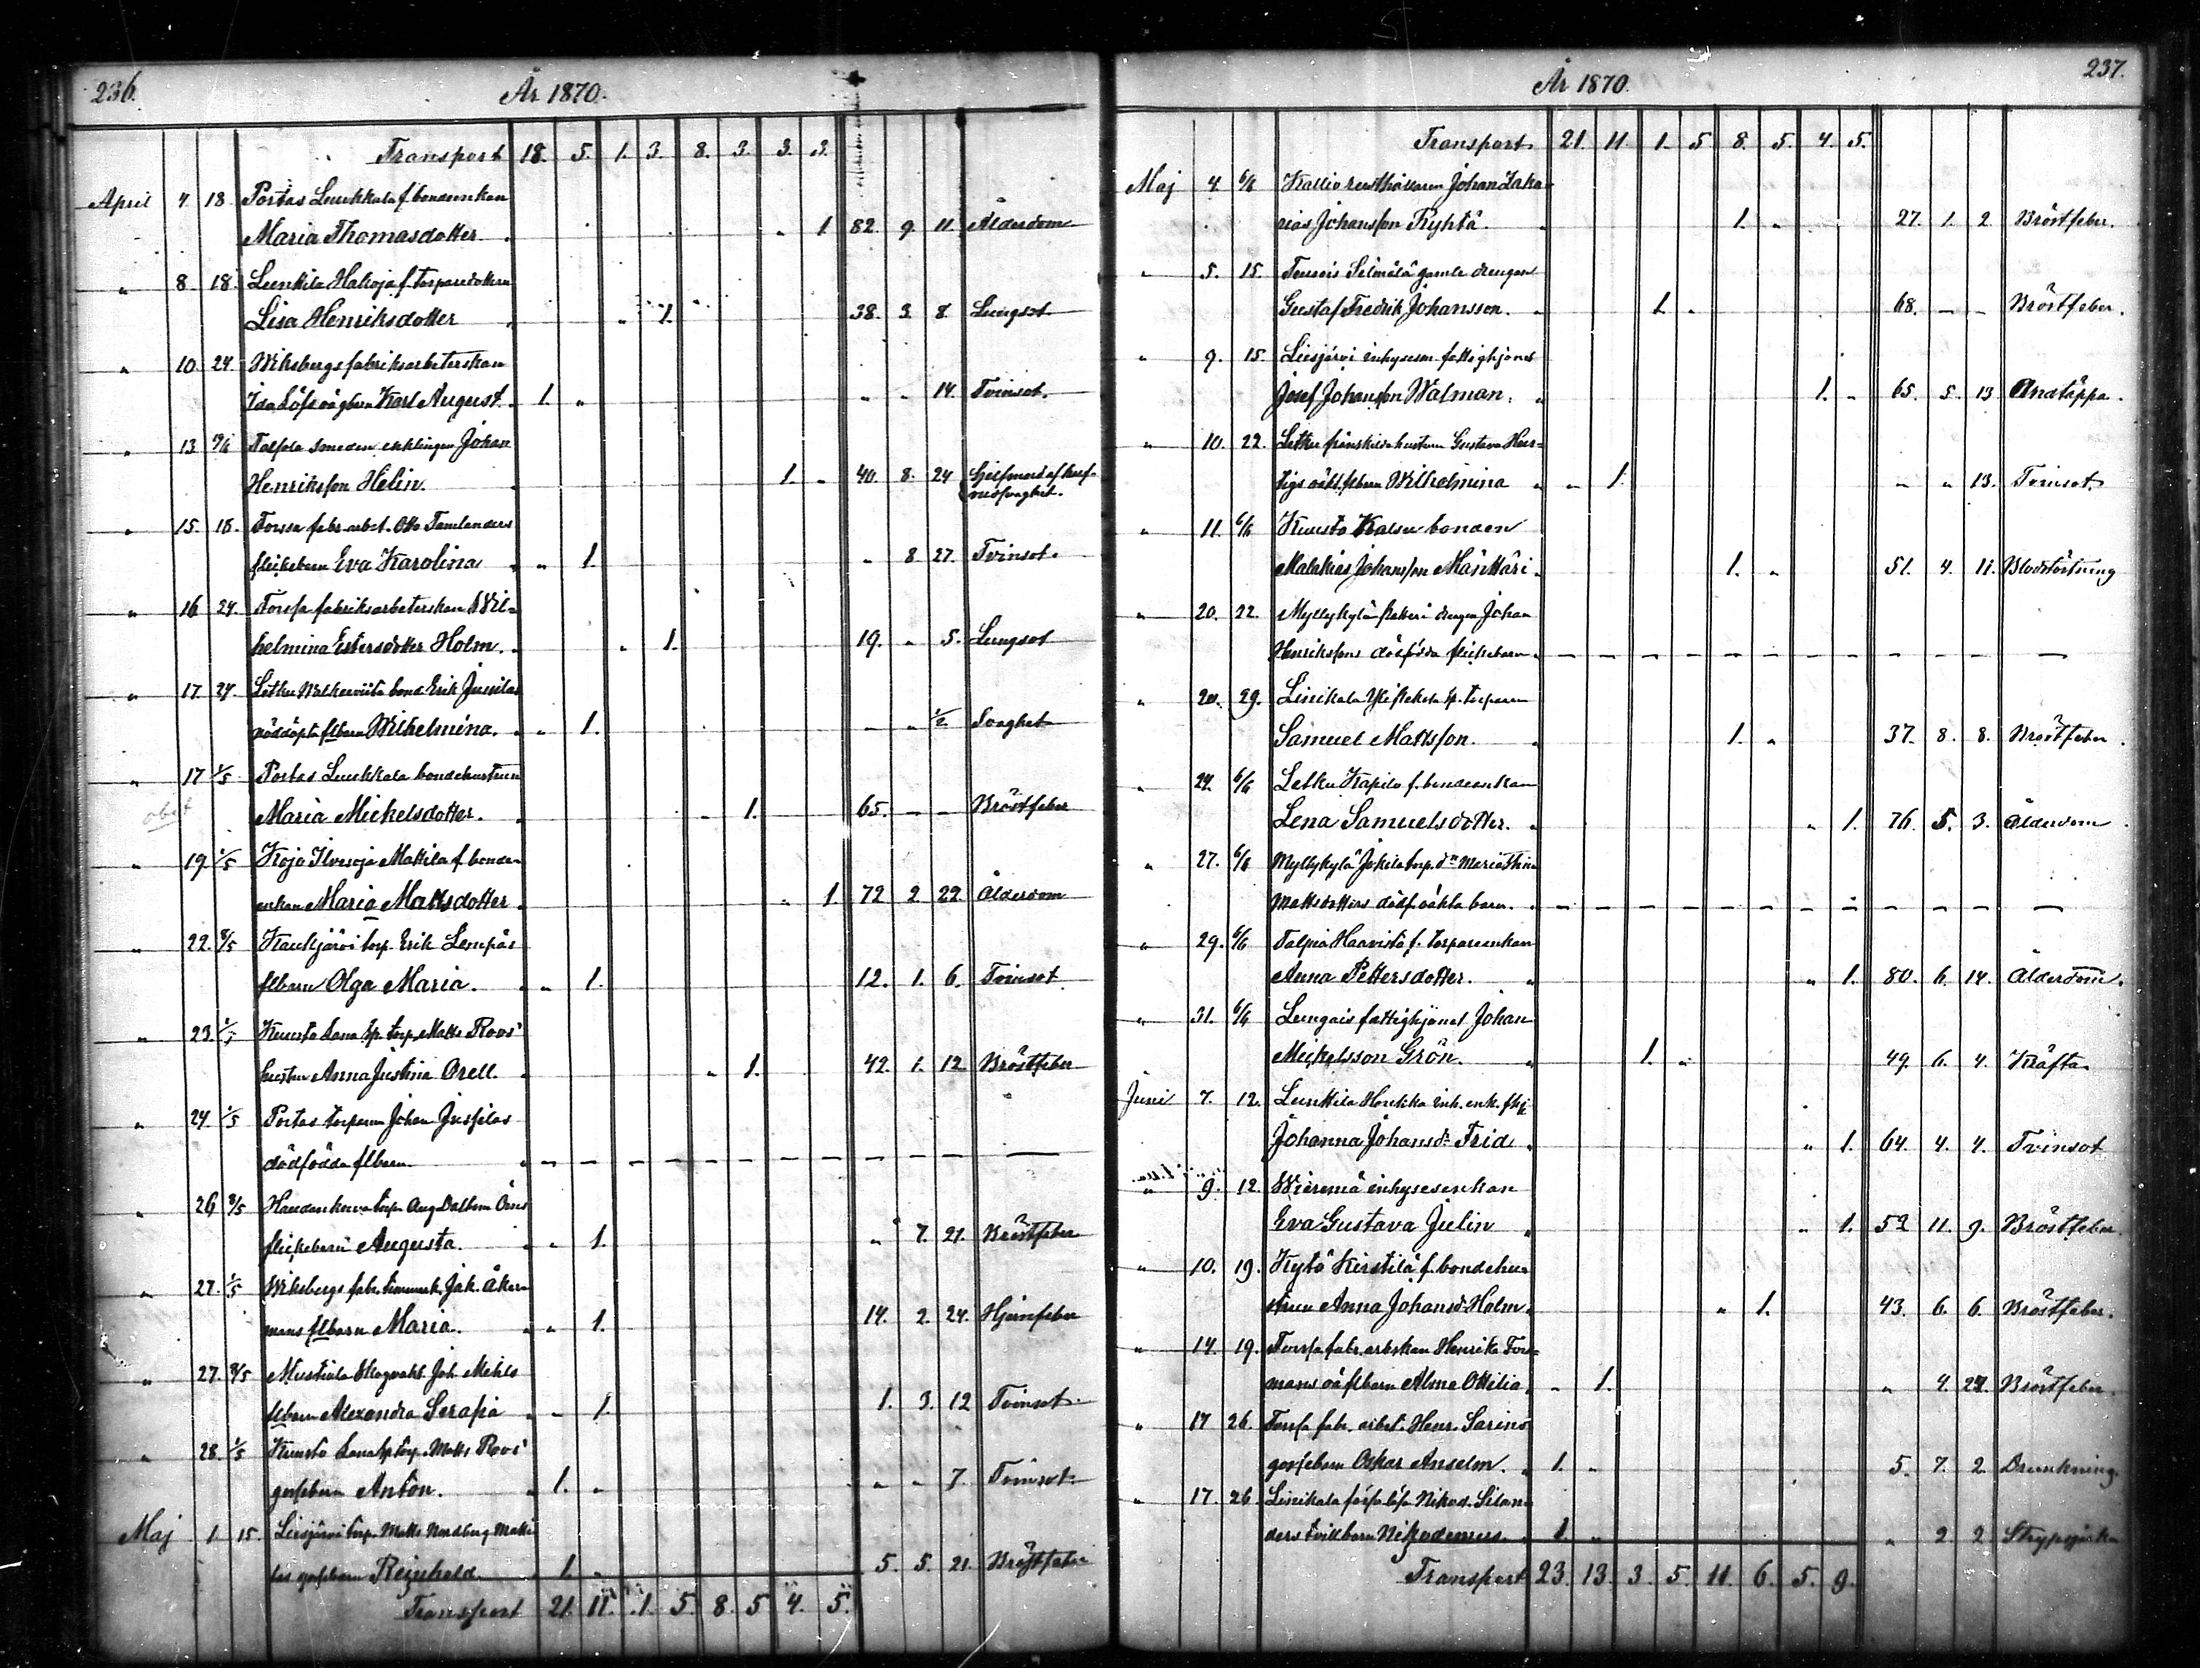 236.
År 1870.
Transport 18. 5. 1. 3. 8. 3. 3. 3.
April 4. 18. Portas Leukkala f. bondeenkan
Maria Thomasdotter 1 82. 9. 11. Ålderdom
" 8. 18. Lunttila Hakoja f.
Lisa Henriksdotter 1. 38. 3. 8. Lungsot
" 10. 24. Wiksbergs fabriksarbeterskan
Ida barn Karl August. 1. " " " 14. Tvinsot.
" 13 Talpela smeden enklingen Johan
Henriksson Helin. 1. " 40. 8. 24
" 15. 18. Forssa fabr. arbet. Otto Tamlanders
flickebarn Eva Karolina " 1. " 8. 27. Tvinsot.
" 16. 24. Forssa fabriksarbeterskan Wil=
helmina Estersdotter Holm. " 1. 19. " 5. Lungsot
" 17. 24. Letku bond. Erik Jussilas
nöddöpta flbarn Wilhelmina. " 1. — " 1/2 Svaghet
" 17 1/5 Portas Leukkala bondehustrun
Maria Mickelsdotter. " 1. 65. — — Bröstfeber
" 19. 1/5 Kojo Mattila f. bonde=
enkan Maria Mattsdotter " 1 72 2. 22. Ålderdom
" 22. 8/5 Kaukjärvi torp. Erik Lempäs
flbarn Olga Maria. " 1. 12. 1. 6. Tvinsot
" 23. Kuusto Lana torp. Matts Roos'
hustru Anna Justina Orell. " 1. 42. 1. 12. Bröstfeber
" 24. 1/5 Portas torparen Johan Jussilas
dödfödda flbarn.
" 26. 8/5 torp. Aug. Dalbom
flickebarn Augusta. " 1. " 7. 21. Bröstfeber
" 27. 1/5 Wiksbergs fabr. timmerk. Jak. Åker=
mans flbarn Maria. " 1. 14. 2. 24. Hjernfeber
" 27. 8/5 Mustiala skogvakt. Joh. Mehls
flbarn Alexandra Serafia " 1. 1. 3. 12 Tvinsot.
" 28. 1/5 Kuusto Lana torp. Matts Roos'
gossebarn Anton. 1. " " " 7. Tvinsot.
Maj 1. 15. Liesjärvi torp. Matts Nordberg
gossebarn Reinhold. 1. " 5. 5. 21. Bröstfeber
Transport 21. 11. 1. 5. 8. 5 4. 5.
237.
År 1870.
Transport 21. 11. 1. 5. 8. 5. 4. 5.
Maj 4. 6/6 Kallio rusthållaren Johan Zaka=
rias Johansson Ryhtä. 1. " 27. 1. 2. Bröstfeber.
" 5. 15. gamle drengen
Gustaf Fredrik Johansson. 1. " 68. — — Bröstfeber.
" 9. 15. Liesjärvi inhyses. fattighjonet
Josef Johansson Walman. 1. " 65. 5. 13 Andtäppa.
" 10. 22. Letku frånskilda hustrun Gustava
oäkt. flbarn Wilhelmina " 1. " " 13. Tvinsot.
" 11. 6/6 Kuusto bonden
Malakias Johansson Mänttäri. 1. " 51. 4. 11. Blodstörtning
" 20. 22. Myllykylä drengen Johan
Henrikssons dödfödda flickebarn
" 20. 29. Linikkala torparen
Samuel Mattsson. 1. " 37. 8. 8. Bröstfeber.
" 24. 6/6 Letku Kapilo f. bondeenkan
Lena Samuelsdotter. " 1. 76. 5. 3. Ålderdom
" 27. 6/6 Myllykylä Jokila torp. dn Maria Stina
Mattsdotters dödf. oäkta barn.
" 29. 6/6 Talpia Haavisto f. torpareenkan
Anna Pettersdotter. " 1. 80. 6. 14. Ålderdom.
" 31. 6/6 fattighjonet Johan
Mickelsson Grön. 1. " 49. 6. 4. Kräfta
Juni 7. 12. Lunttila Houkka inh. enk.
Johanna Johansdr Frid " 1. 64. 4. 4. Tvinsot
" 9. 12. Wieremä inhysesenkan
Eva Gustava Julin " 1. 52 11. 9. Bröstfeber.
" 10. 19. Kytö Kirstilä f. bondehu=
strun Anna Johansdr Holm. " 1. 43. 6. 6. Bröstfeber.
" 14. 19. Forssa fabr. arbskan Henrika Fors=
mans oä flbarn Alma Ottilia " 1. " 4. 24. Bröstfeber.
" 17 26. Forssa fabr. arbet. Henr. Sarins
gossebarn Oskar Anselm. 1. " 5. 7. 2. Drunkning.
" 17. 26. Linikkala Nikod. Silan=
ders tvillbarn Nikodemus. 1. " " 2. 2. Strypsjuka
Transport 23. 13. 3. 5. 11. 6. 5. 9.